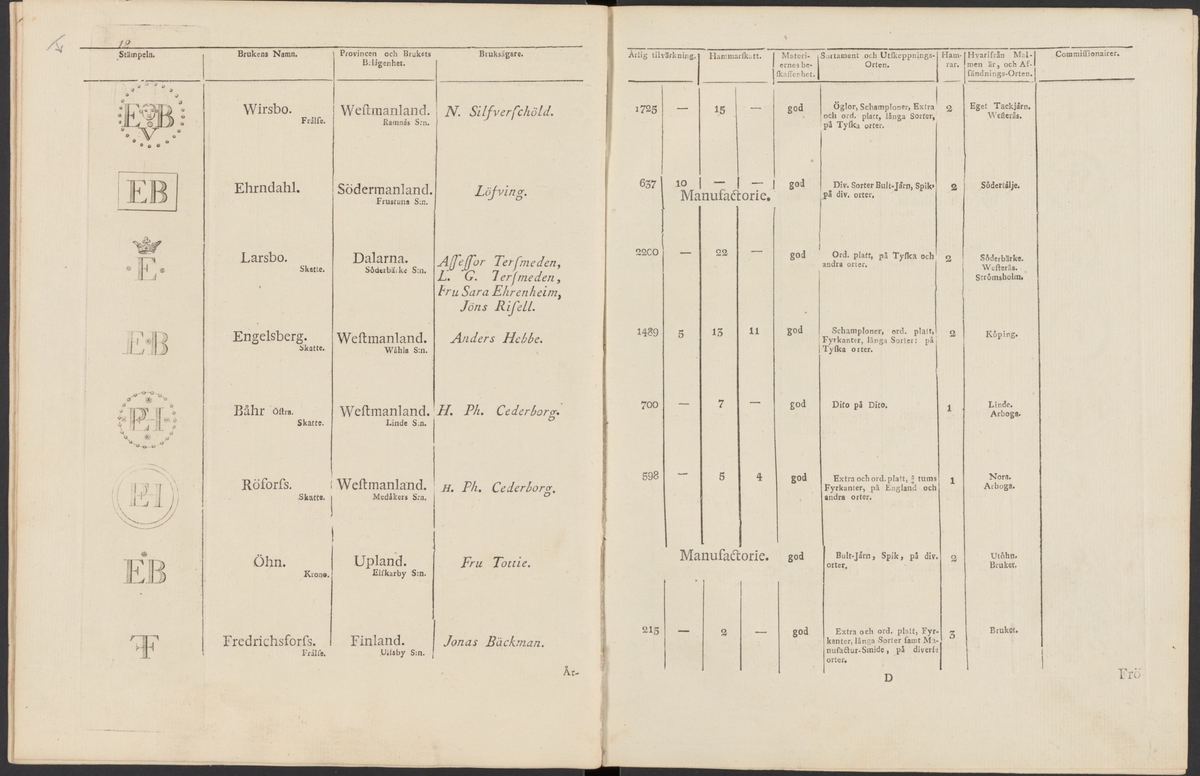 12
Stämpeln. Brukens Namn. Provincen och Brukets Belägenhet. Bruksägare.
EB
Wirsbo.
Frälse.
Westmanland.
Ramnäs S:n.
N. Silfverschöld.
EB
Ehrndahl.
Södermanland.
Frustuna S:n.
Löfving.
E
Larsbo.
Skatte.
Dalarna.
Söderbärke S:n.
Assessor Tersmeden,
L. G. Tersmeden,
Fru Sara Ehrenheim,
Jöns Risell.
EB
Engelsberg.
Skatte.
Westmanland.
Wåhla S:n.
Anders Hebbe.
Båhr Östra.
Skatte.
Westmanland.
Linde S:n.
H. Ph. Cederborg.
Röforss.
Skatte.
Westmanland.
Medåkers S:n.
H. Ph. Cederborg.
EB
Öhn.
Krono.
Upland.
Elfkarby S:n.
Fru Tottie.
Fredrichsforss.
Frälse.
Finland.
Ulfsby S:n.
Jonas Bäckman.
Är-
Årlig tilvärkning. Hammarskatt. Materiernes beskaffenhet. Sortament och Utskeppnings-Orten. Hamrar. Hvarifrån Malmen är, och Afsändnings-Orten. Commissionairer.
1725 — 15 — god
Öglor, Schamploner, Extra
och ord. platt, långa Sorter,
på Tyska orter.
2
Eget Tackjärn.
Westerås.
637 10 — — god
Manufactorie.
Div. Sorter Bult-Järn, Spik,
på div. orter.
2
Södertälje.
2200 — 22 — god
Ord. platt, på Tyska och
andra orter.
2
Söderbärke.
Westerås.
Strömsholm.
1489 5 13 11 god
Schamploner, ord. platt,
Fyrkanter, långa Sorter: på
Tyska orter.
2
Köping.
700 — 7 — god
Dito på Dito.
1
Linde.
Arboga.
598 — 5 4 god
Extra och ord. platt, tums
Fyrkanter, på England och
andra orter.
1
Nora.
Arboga.
Manufactorie. god
Bult-Järn, Spik, på div.
orter.
2
Utöhn.
Bruket.
215 — 2 — god
Extra och ord. platt, Fyr-
kanter, långa Sorter samt Ma-
nufactur-Smide, på diverse
orter.
3
Bruket.
D
Frö